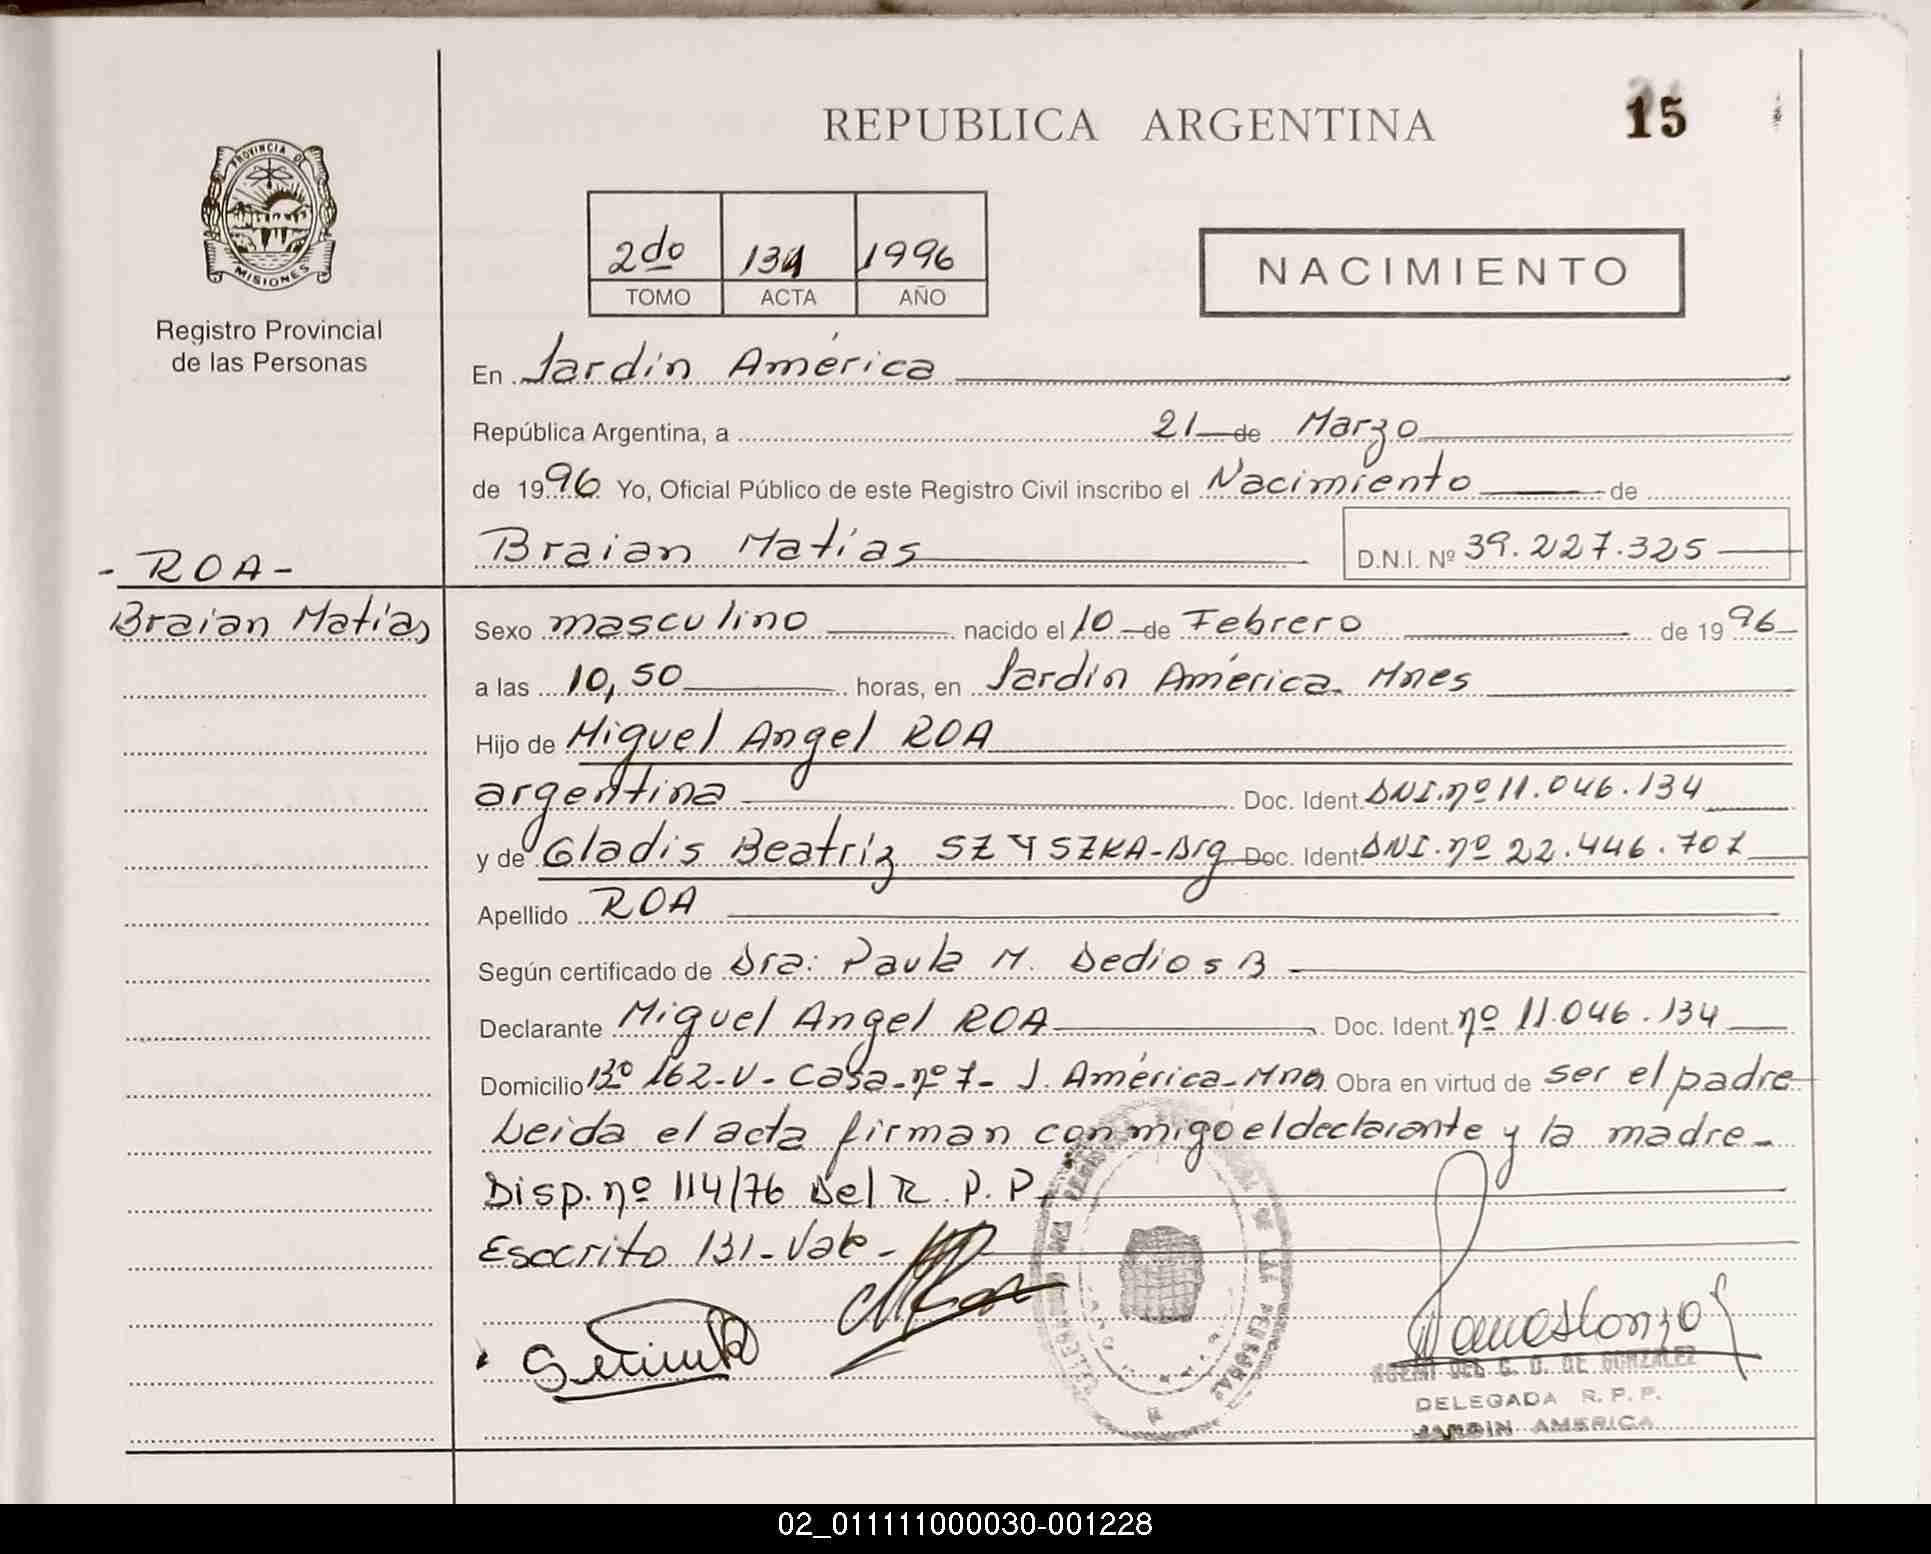 REPUBLICA ARGENTINA
15
PROVINCIA DE
MISIONES
Registro Provincial
de las Personas
2do 131 1996
TOMO ACTA AÑO
NACIMIENTO
En Jardín América
República Argentina, a 21 de Marzo
de 1996 Yo, Oficial Público de este Registro Civil inscribo el Nacimiento de
Braian Matías D.N.I. Nº 39.227.325
- ROA -
Braian Matías
Sexo masculino nacido el 10 de Febrero de 1996
a las 10,50 horas, en Jardín América. Mnes
Hijo de Miguel Angel ROA
argentina Doc. Ident. DNI. nº 11.046.134
y de Gladis Beatríz SZYSZKA - Arg Doc. Ident DNI. nº 22.446.707
Apellido ROA
Según certificado de Dra: Paula M. Dedios B
Declarante Miguel Angel ROA Doc. Ident. nº 11.046.134
Domicilio Bº 162-V- Casa-nº 7- J. América-Mnes Obra en virtud de ser el padre
Leida el acta firman conmigo el declarante y la madre-
Disp. nº 114/76 Del R. P. P.
Esocrito 131- Vale-
DE GONZALEZ
DELEGADA R. P. P.
JARDIN AMERICA
02_011111000030-001228